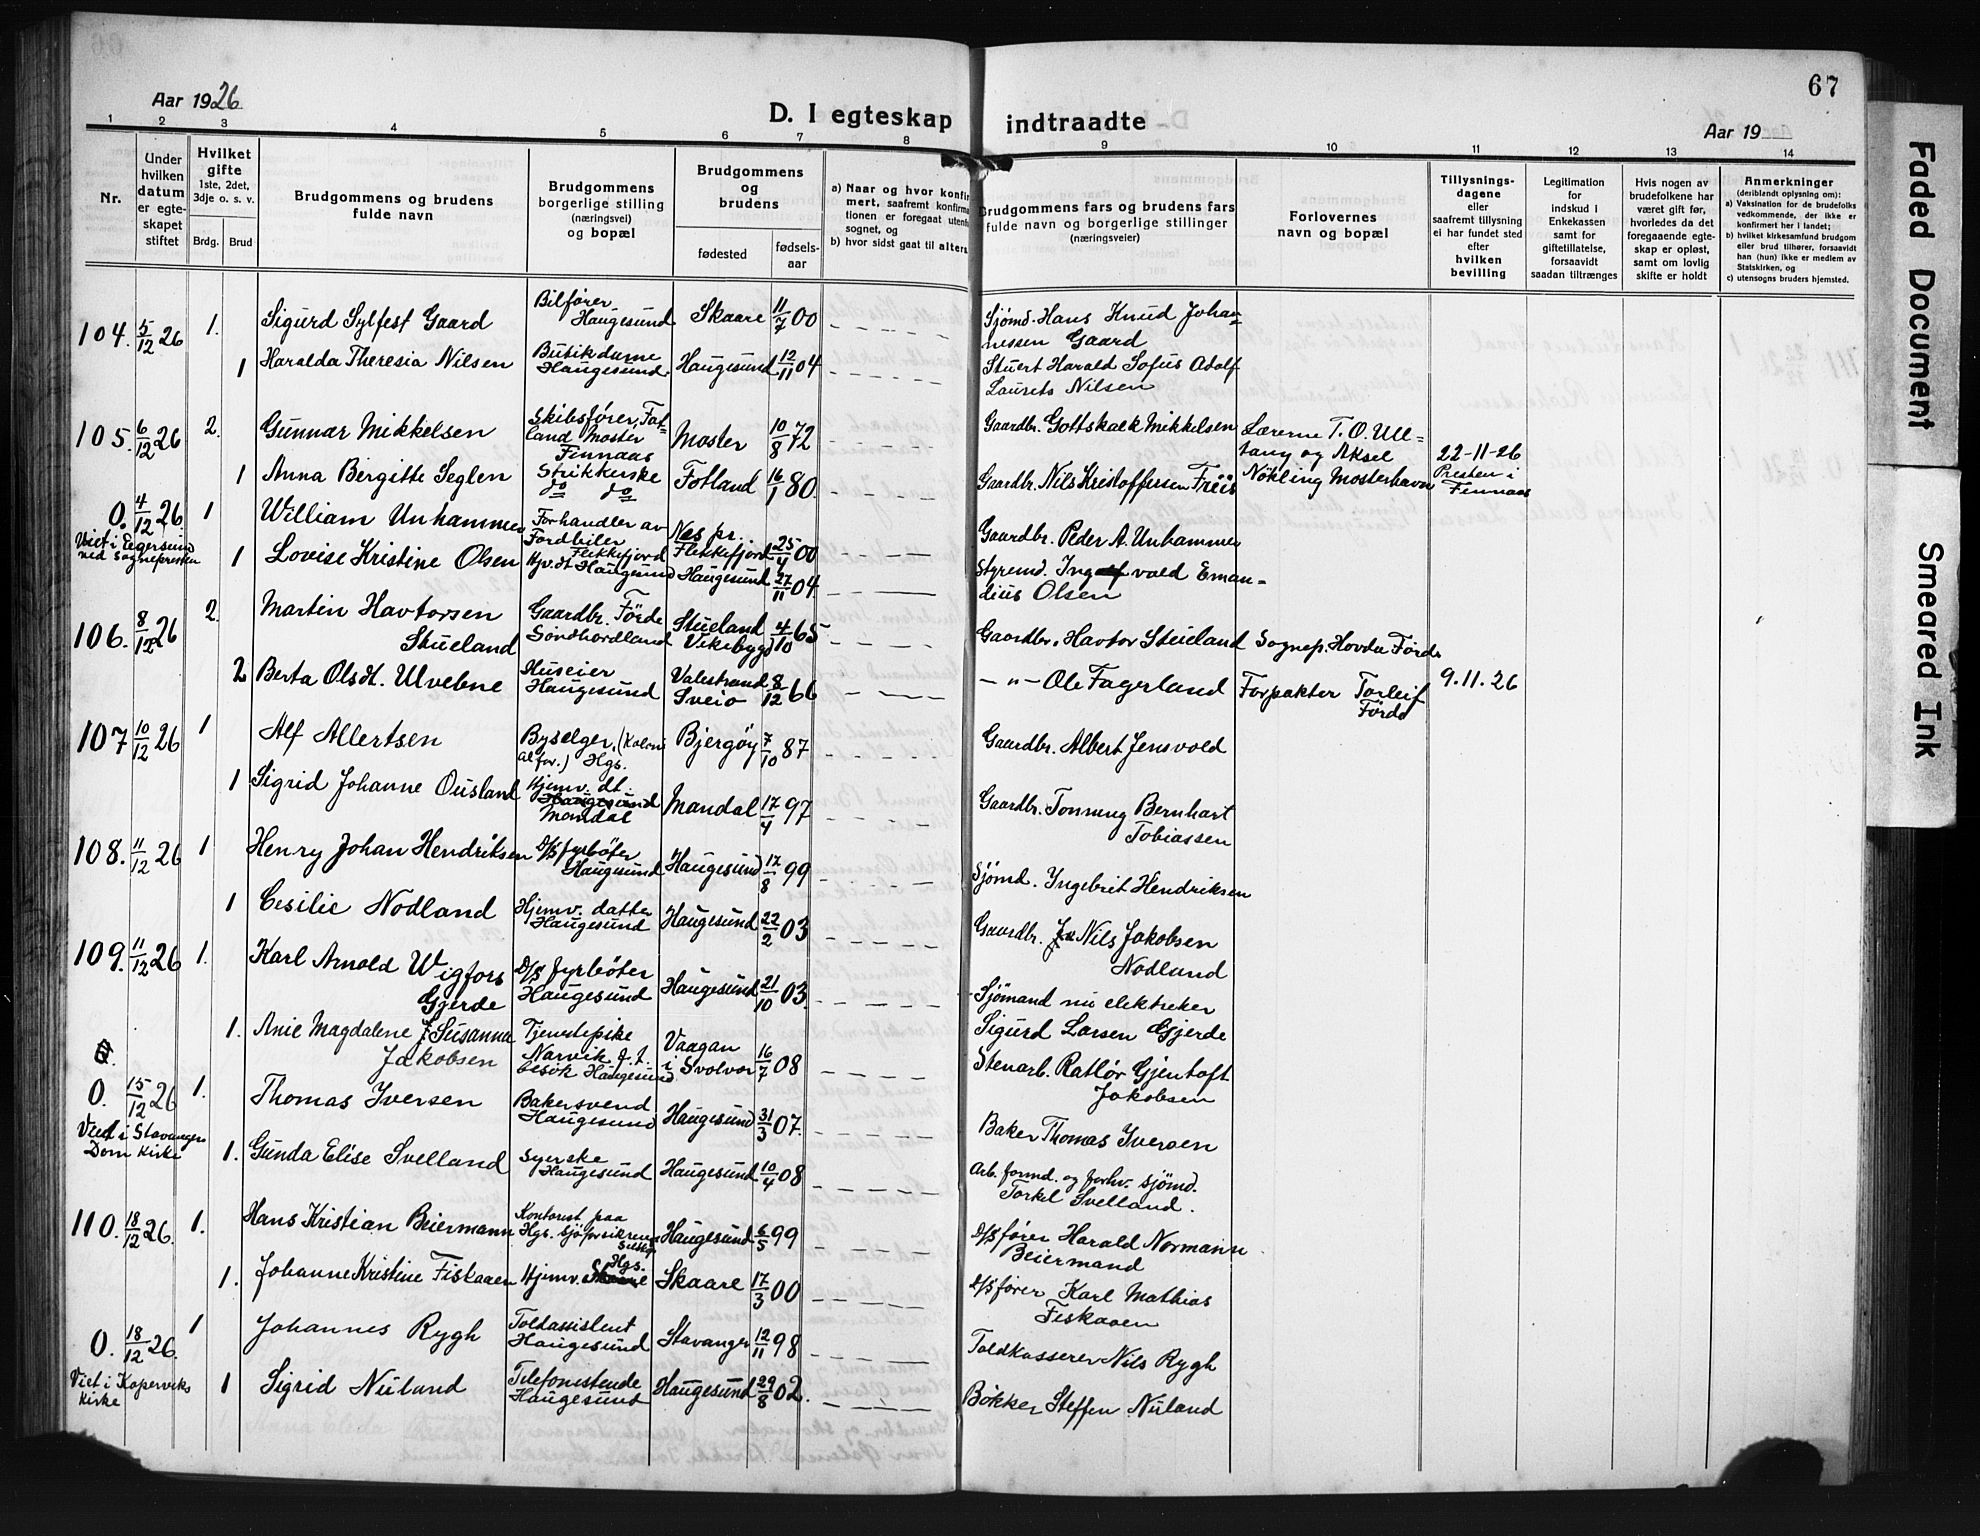 67
Aar 1926
D. I egteskap indtraadte
Aar 19
1 2 3 4 5 6 7 8 9 10 11 12 13 14
Nr.
Under hvilken datum er egteskapet stiftet
Hvilket gifte
1ste, 2det, 3dje o. s. v.
Brdg. Brud
Brudgommens og brudens fulde navn
Brudgommens borgerlige stilling (næringsvei) og bopæl
Brudgommens og brudens
fødested
fødselsaar
a) Naar og hvor konfir
mert, saafremt konfirma
tionen er foregaat utenfo
sognet, og
b) hvor sidst gaat til alters
Brudgommens fars og brudens fars
fulde navn og borgerlige stillinger
(næringsveier)
Forlovernes
navn og bopæl
Tillysnings-
dagene
eller
saafremt tillysning
ei har fundet sted
efter
hvilken
bevilling
Legitimation
for
indskud i
Enkekassen
samt for
giftetillatelse,
forsaavidt
saadan tiltrænges
Hvis nogen av
brudefolkene har
været gift før,
hvorledes da det
foregaaende egte-
skap er opløst,
samt om lovlig
skifte er holdt
Anmerkninger
(deriblandt oplysning om):
a) Vaksination for de brudefolks
vedkommende, der ikke er
konfirmert her i landet;
b) hvilket kirkesamfund brudgom
eller brud tilhører, forsaavidt
han (hun) ikke er medlem av
Statskirken, og
c) utensogns bruders hjemsted.
104. 5/12 26 1. Sigurd Sylfest Gaard Bilfører Haugesund Skaare 11/7 00 Sjømd. Hans Knud Johan=
nessen Gaard
1 Haralda Theresia Nilsen Butikdame Haugesund Haugesund 12/11 04 Stuert Harald Sofus Adolf
Laurets Nilsen
105. 6/12 26 2. Gunnar Mikkelsen Skibsfører, Fot=
land Moster
Finnaas Moster 10/8 72 Gaardbr. Gottskalk Mikkelsen Lærerne T. O. Ull=
tang og Aksel
Nökling Mosterhavn 22-11-26
Presten i
Finnaas
1 Anna Bergitte Seglen Strikkerske
do do Fotland 16/1 80 Gaardbr. Nils Kristoffersen Friis
0. 4/12 26 1 William Unhammer Forhandler av
Fordbiler
Flekkefjord Nes pr.
Flekkefjord 25/4 00 Gaardbr. Peder A. Unhammer
Viet i Egersund
ved sognepresten
1 Lovise Kristine Olsen Hjv. dt Haugesund Haugesund 27/11 04 Styrmd. Ingvald Eman-
dius Olsen
106. 8/12 26 2. Martin Havtorsen
Stueland Gaardbr. Förde
Söndhordland Stueland
Vikebygd 4/10 65 Gaardbr. Havtor Stueland Sognep. Hovda Förde
2 Berta Olsdt. Ulvebne Huseier
Haugesund Valestrand
Sveio 8/12 66 - " - Ole Fagerland Forpakter Torleif
Förde 9.11.26
107 10/12 26 1 Alf Allertsen Byselger, (Koloni
alfor.) Hgs. Bjergöy 7/10 87 Gaardbr. Albert Jensvold
1 Sigrid Johanne Ousland Hjemv. dt.
Haugesund
Mandal Mandal 17/4 97 Gaardbr. Tönning Bernhart
Tobiassen
108. 11/12 26 1 Henry Johan Hendriksen D/S fyrbøter
Haugesund Haugesund 17/8 99 Sjömd. Ingebrit Hendriksen
1 Cesilie Nodland Hjemv. datter
Haugesund Haugesund 22/2 03 Gaardbr. Nils Jakobsen
Nodland
109. 11/12 26 1. Karl Arnold Wigfors
Gjerde D/S fyrbøter
Haugesund Haugesund 21/10 03. Sjömand nu elektriker
Sigurd Larsen Gjerde
1. Anie Magdalene Susanna
Jakobsen Tjenestepike
Narvik f. t.
besök Haugesund Vaagan
i Svolvær 16/7 08 Stenarb. Ratlör Gjentoft
Jakobsen
0. 15/12 26 1. Thomas Iversen Bakersvend
Haugesund Haugesund 31/3 07. Baker Thomas Iversen
Viet i Stavanger
Dom kirke
1. Gunda Elise Svelland Syerske
Haugesund Haugesund 10/4 08 Arb. formd. og forhv. sjömd.
Torkel Svelland.
110. 18/12 26. 1. Hans Kristian Beiermann Kontorist paa
Hgs. sjöforsikrings
selskap Haugesund 6/5 99 D/S fører Harald Normann
Beiermand
1. Johanne Kristine Fiskaaen Hjemv. Skaare Hgs. Skaare 17/3 00 D/S fører Karl Mathias
Fiskaaen
0. 18/12 26. 1 Johannes Rygh Toldassistent
Haugesund Stavanger 12/11 98 Toldkasserer Nils Rygh
Viet i Kopervik
kirke
1 Sigrid Nuland Telefonistinde
Haugesund Haugesund 29/8 02. Bökker Steffen Nuland
Faded Document
Smeared Ink